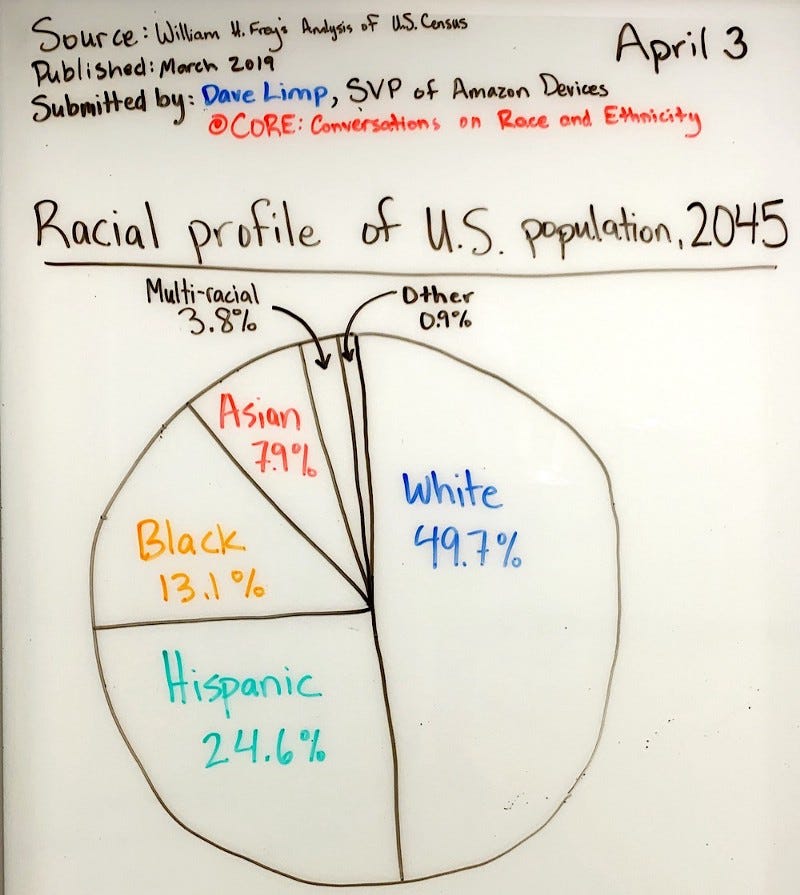 Source: William H. Frey's Analysis of U.S. Census
April 3
Published: March 2019
Submitted by: Dave Limp, SVP of Amazon Devices
@CORE: Conversations on Race and Ethnicity
Racial profile of U.S. population, 2045
Multi-racial
3.8%
Other
0.9%
Asian
7.9%
White
49.7%
Black
13.1%
Hispanic
24.6%